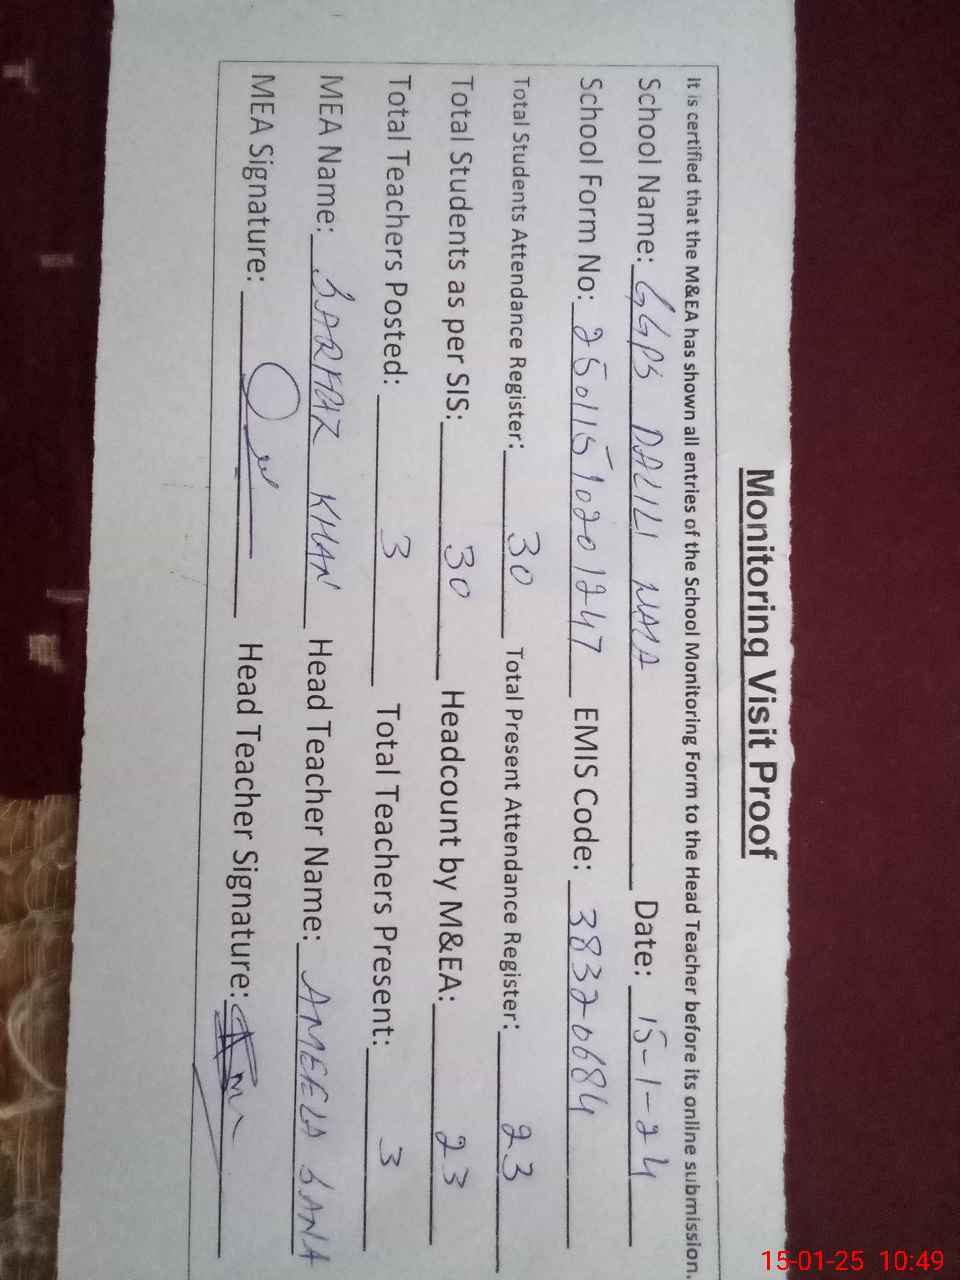 Monitoring Visit Proof
It is certified that the M&EA has shown all entries of the School Monitoring Form to the Head Teacher before its online submission.
School Name: GGPS DALILI Date: 15-1-24
School Form No: 25011510201247 EMIS Code: 38320684
Total Students Attendance Register: 30 Total Present Attendance Register: 23
Total Students as per SIS: 30 Headcount by M&EA: 23
Total Teachers Posted: 3 Total Teachers Present: 3
MEA Name: SARFRAZ KHAN Head Teacher Name: AMEELA SANA
MEA Signature: Head Teacher Signature:
15-01-25 10:49